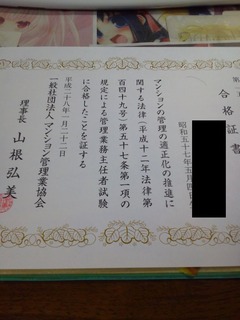 合格証書
昭和五十七年五月四日
マンションの管理の適正化の推進に
関する法律(平成十二年法律第
百四十九号)第五十七条第一項の
規定による管理業務主任者試験
に合格したことを証する
平成二十八年一月二十二日
一般社団法人マンション管理業協会
理事長 山根弘美